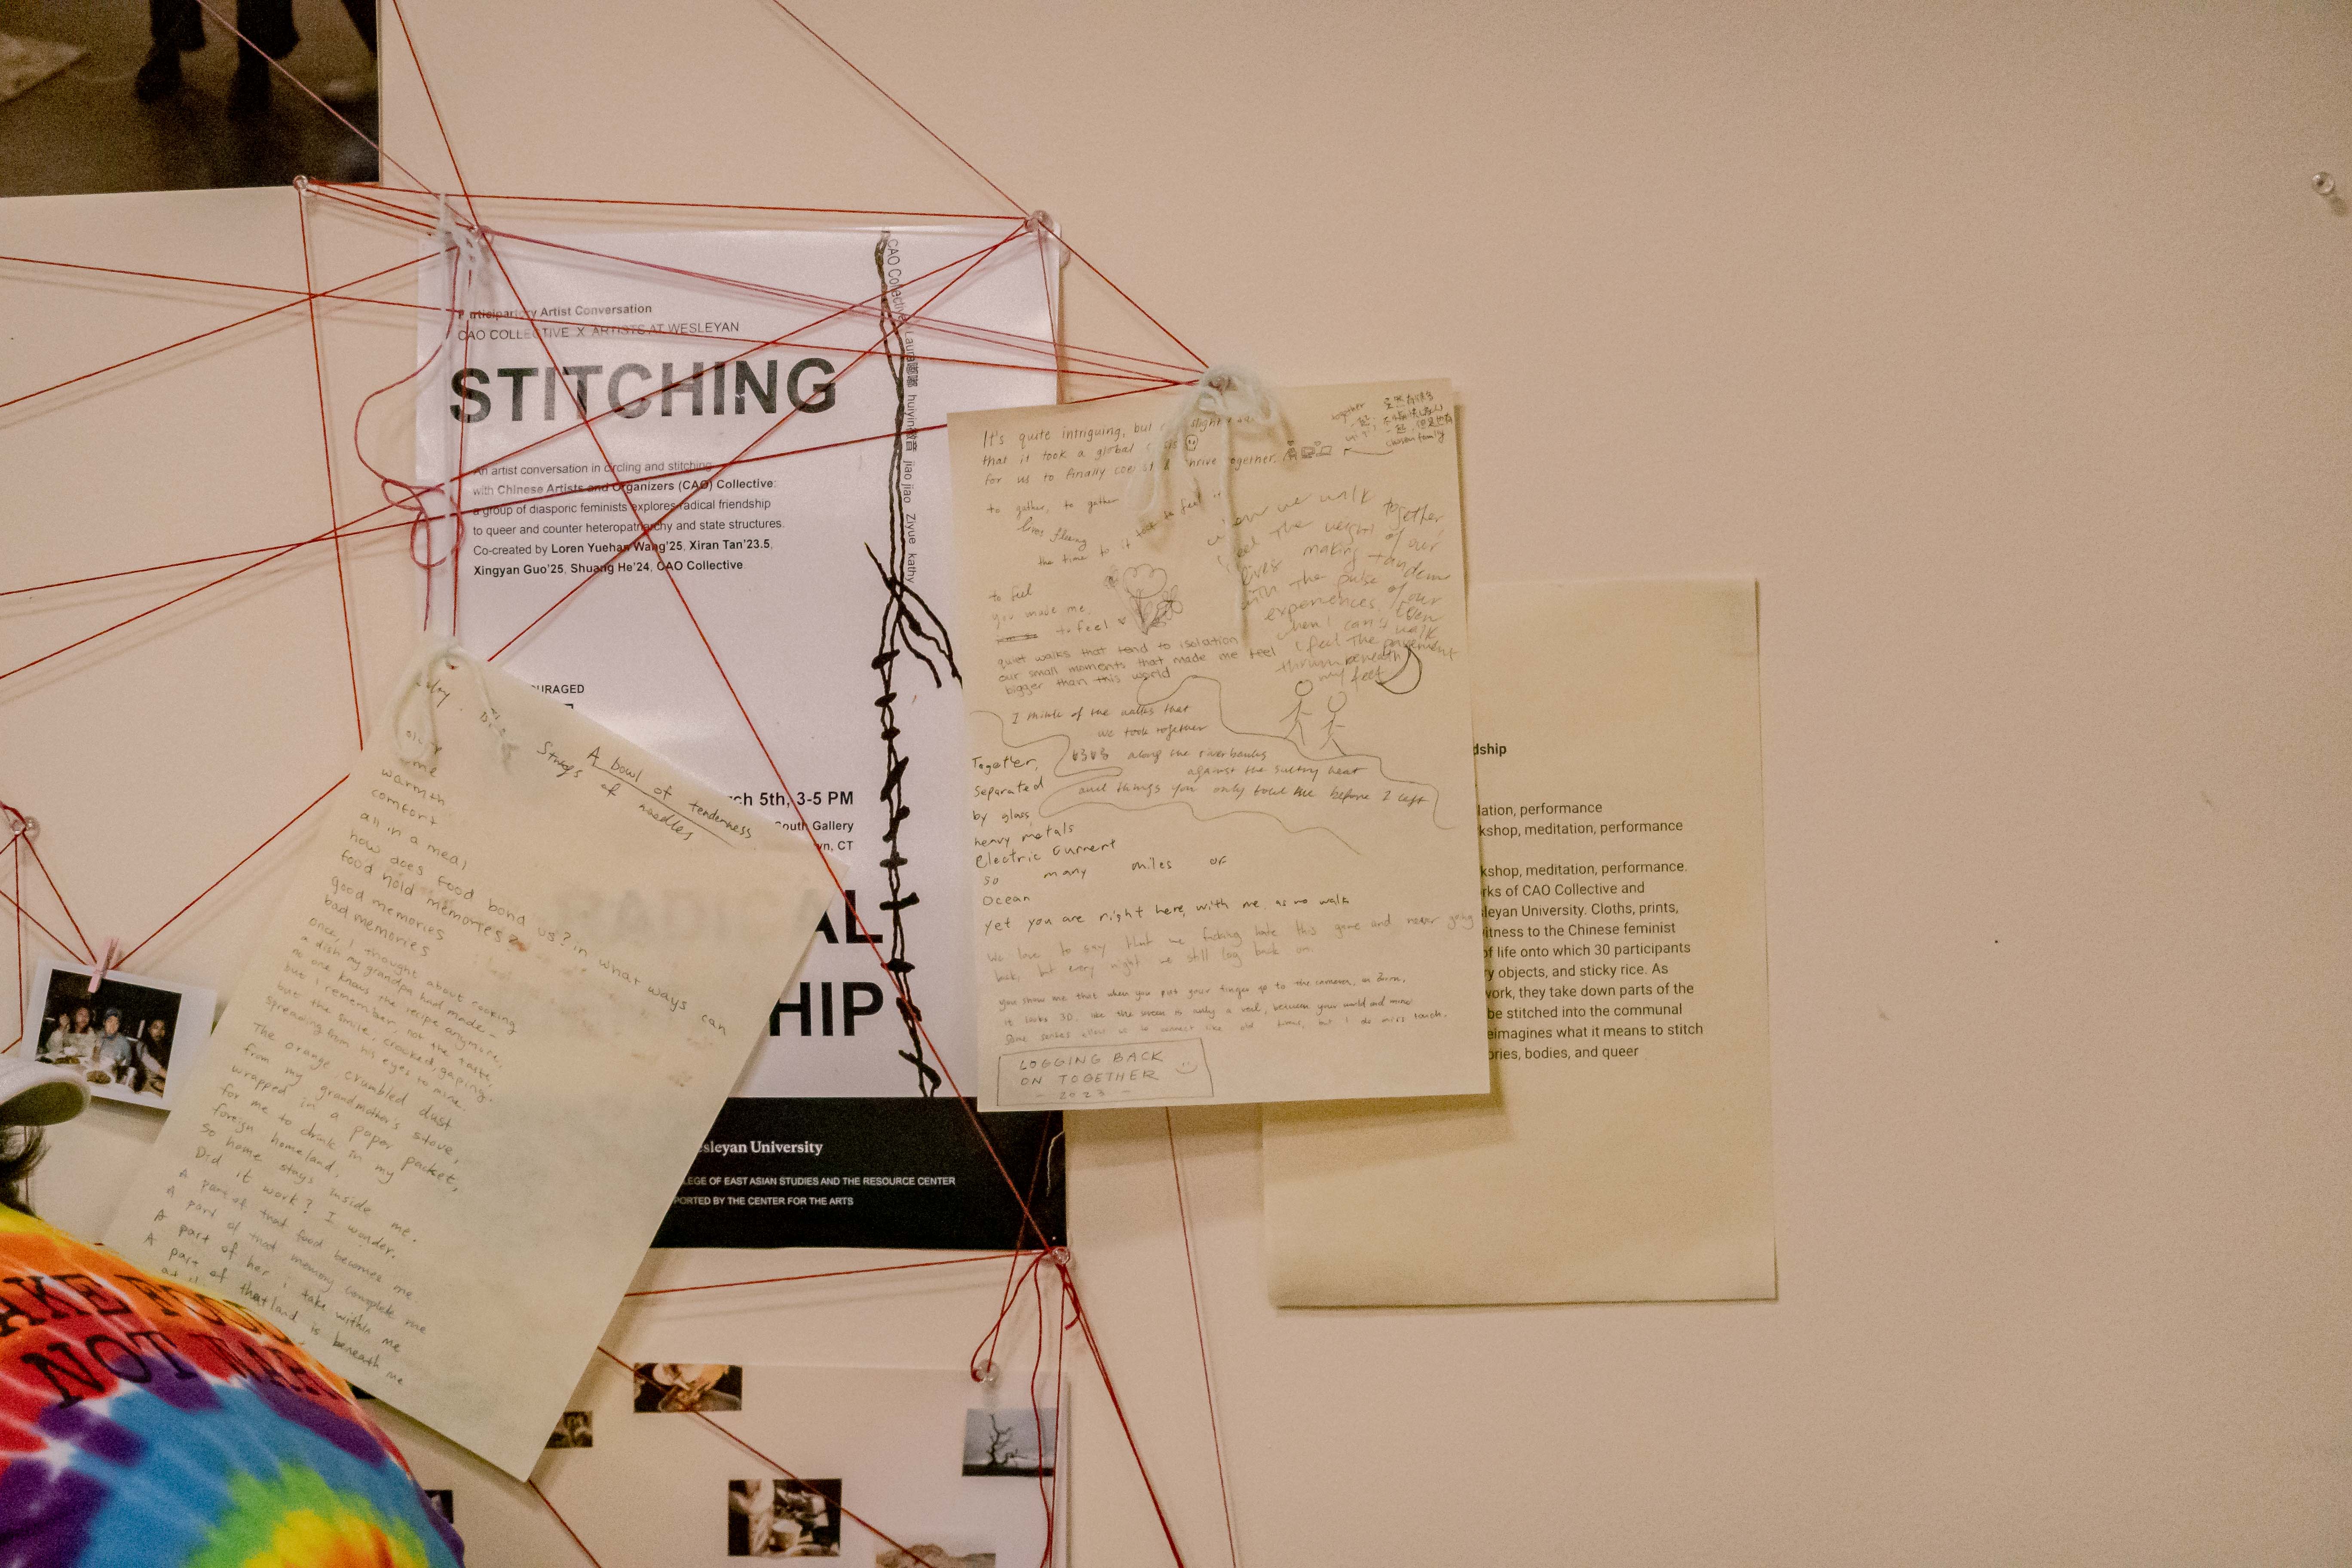 Participatory Artist Conversation
CAO COLLECTIVE X ARTISTS AT WESLEYAN
STITCHING
An artist conversation in circling and stitching
with Chinese Artists and Organizers (CAO) Collective:
a group of diasporic feminists explores radical friendship
to queer and counter heteropatriarchy and state structures.
Co-created by Loren Yuehan Wang'25, Xiran Tan'23.5,
Xingyan Guo'25, Shuang He'24, CAO Collective
CAO Collective
Laura
huiyin
jiao jiao Ziyue kathy
URAGED
ch 5th, 3-5 PM
South Gallery
n, CT
AL
HIP
sleyan University
LEGE OF EAST ASIAN STUDIES AND THE RESOURCE CENTER
PORTED BY THE CENTER FOR THE ARTS
A bowl of tenderness
Strings of noodles
me
warmth
comfort
all in a meal
how does food bond us? in what ways can
food hold memories?
good memories
bad memories
once, I thought about cooking
a dish my grandpa had made –
no one knows the recipe anymore.
but I remember, not the taste,
but the smile, crooked, gaping,
spreading from his eyes to mine.
The orange, crumbled dust
from my grandmother's stove,
wrapped in a paper packet,
for me to drink in my
foreign homeland,
so home stays inside me.
Did it work? I wonder.
A part of that food becomes me
A part of that memory complete me
A part of her i take within me
A part of that land is beneath me
It's quite intriguing, but
that it took a global
for us to finally together.
together
chosen family
to gather, to gather
the time to
to feel
you made me
to feel
we walk together,
feel the weight of our
lives making tandem
with the pulse of our
experiences. Even
when I can't walk
I feel the pavement
thrum beneath
my feet
quiet walks that tend to isolation
our small moments that made me feel
bigger than this world
I think of the walks that
we took together
along the riverbanks
against the sultry heat
and things you only told me before I left
Together,
separated
by glass,
heavy metals
Electric current
so many miles of
Ocean
Yet you are right here, with me, as we walk
We love to say that we fucking hate this game and never going
back, but every night we still log back on.
you show me that when you put your finger up to the camera, in Zoom,
it looks 3D, like the screen is really a veil, between your world and mine.
LOGGING BACK
ON TOGETHER
– 2023 –
dship
lation, performance
kshop, meditation, performance
kshop, meditation, performance.
rks of CAO Collective and
leyan University. Cloths, prints,
itness to the Chinese feminist
of life onto which 30 participants
ry objects, and sticky rice. As
work, they take down parts of the
be stitched into the communal
eimagines what it means to stitch
ories, bodies, and queer
AKE FOOD
NOT WAR